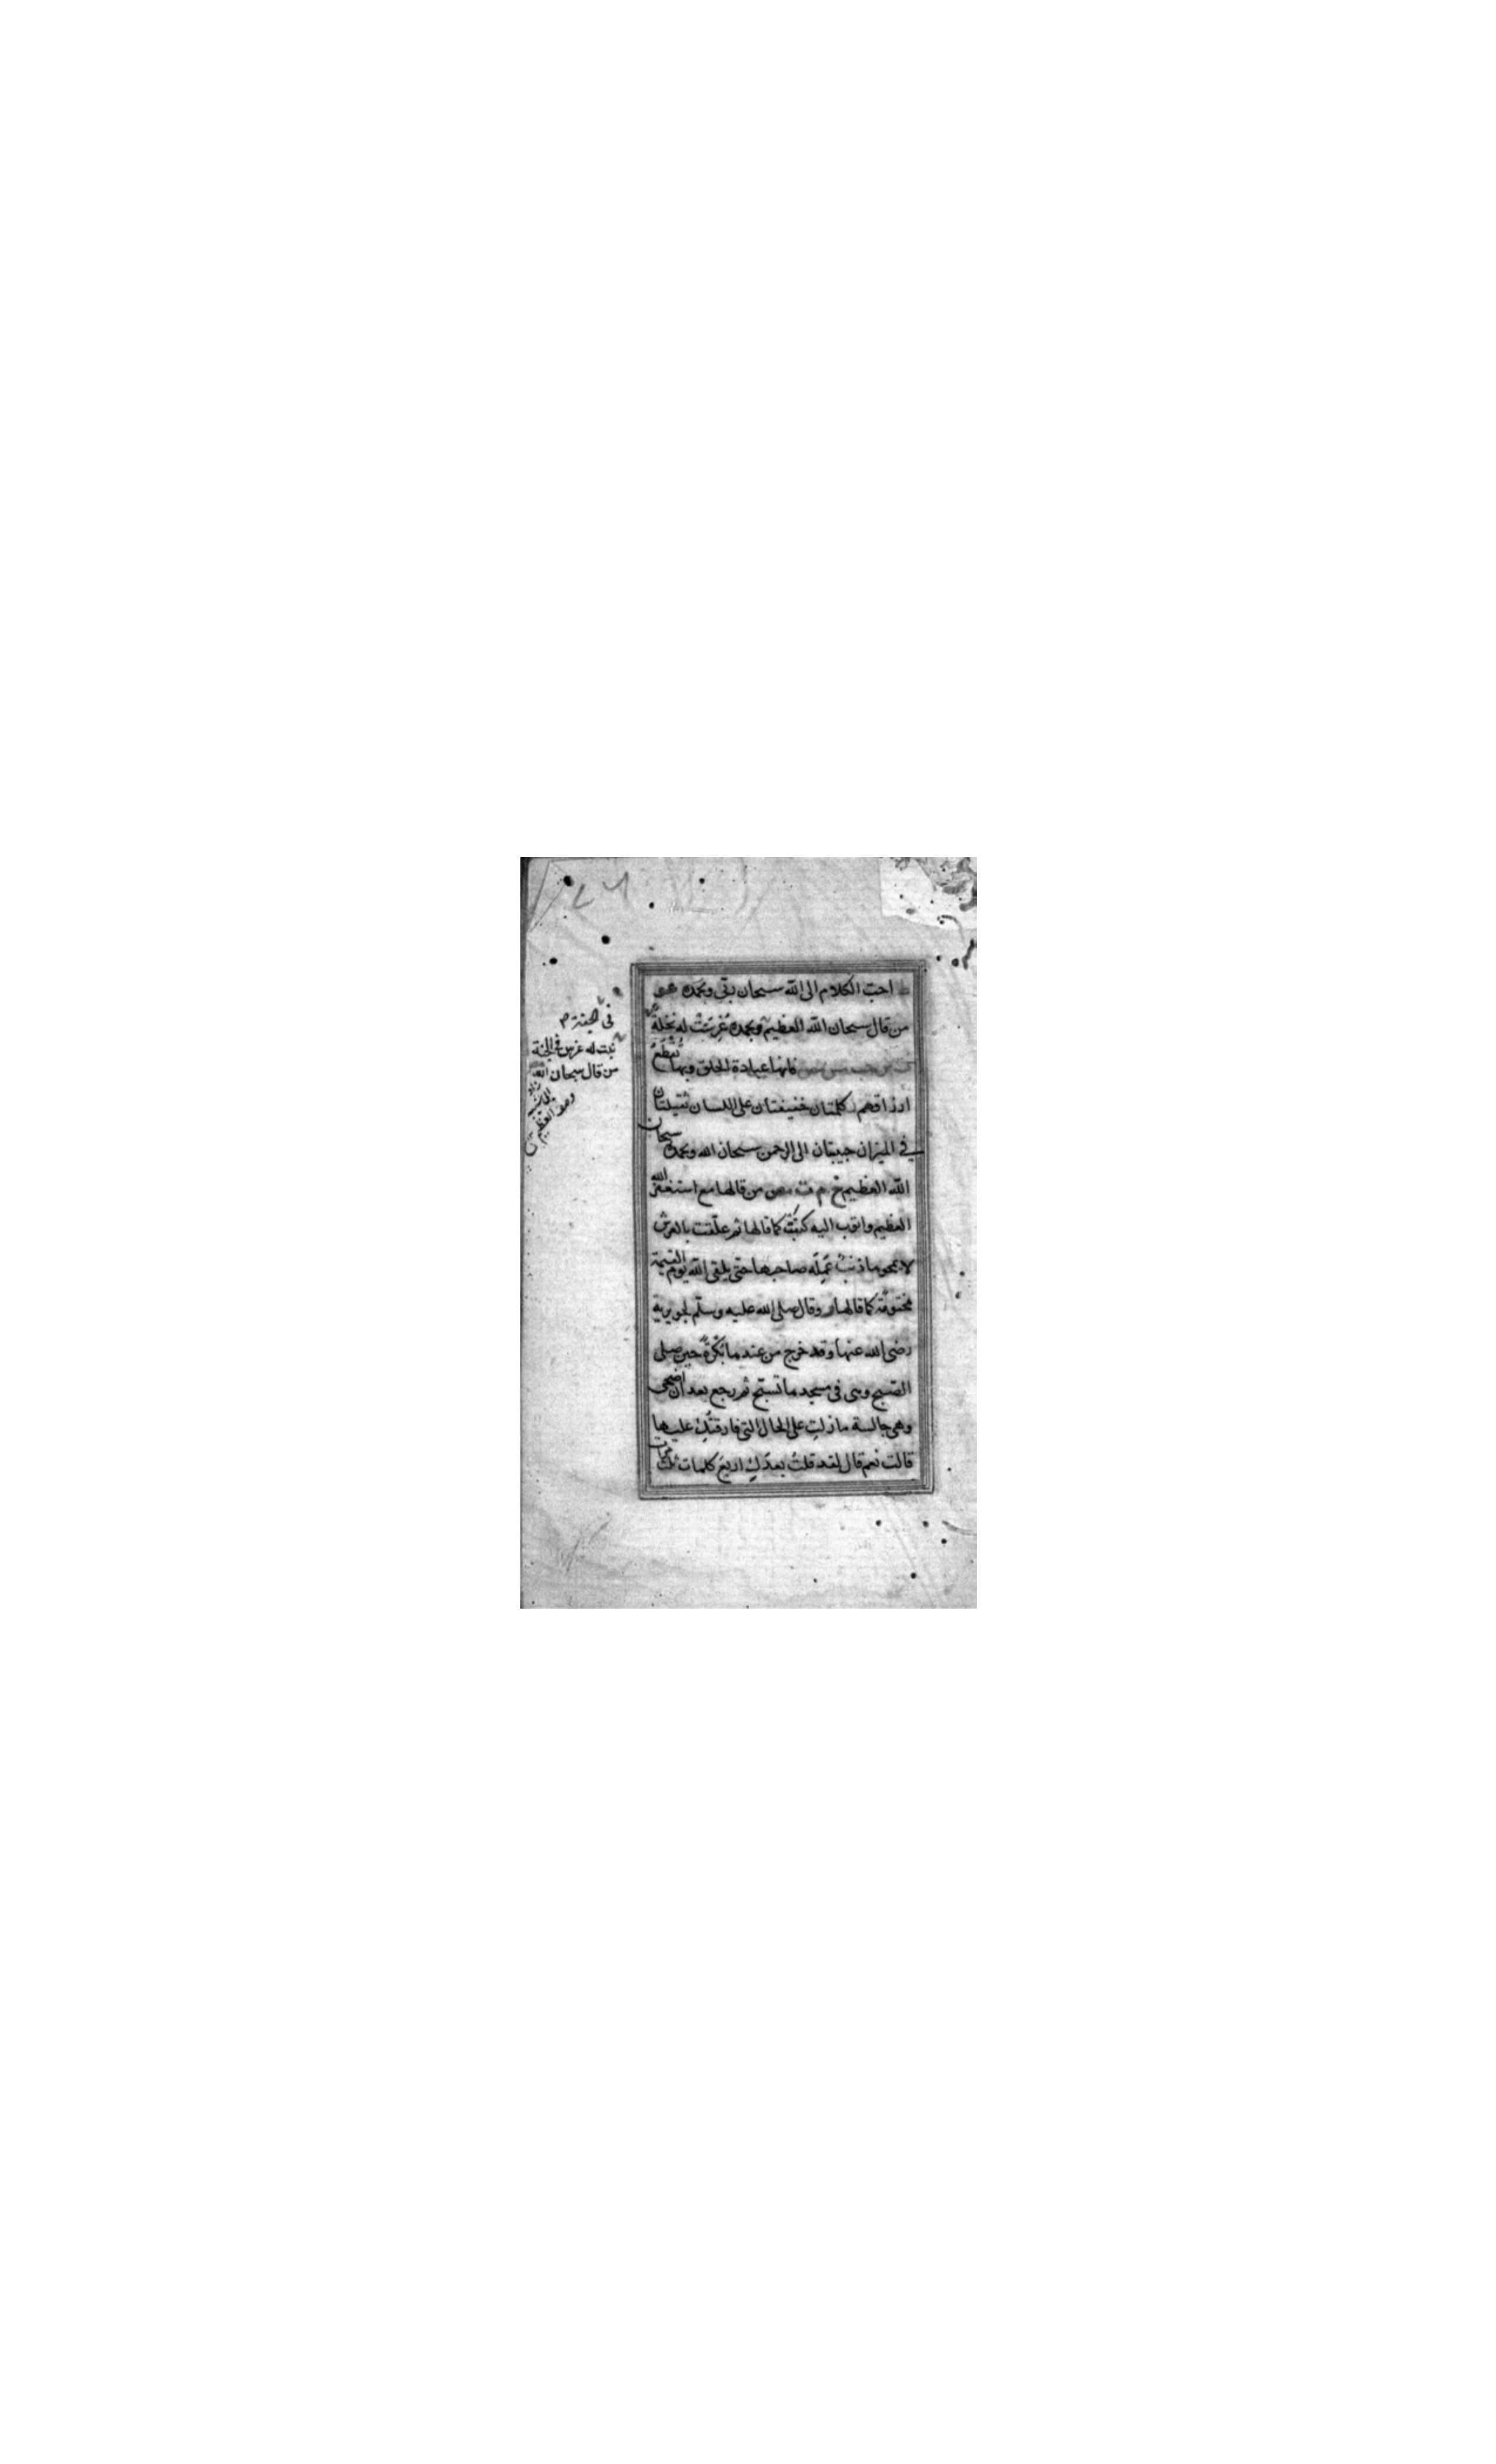 احبّ الكلام الى الله سبحان ربّي وبحمده عو
من قال سبحان الله العظيم وبحمده غُرِسَتْ له نخلةٌ
فانها عبادة الخلق وبها تُقطَعُ
ارزاقهم كلمتان خفيفتان على اللسان ثقيلتان
في الميزان حبيبتان الى الرحمن سبحان الله وبحمده سبحان
الله العظيم خ م ت مص من قالها مع استغفر الله
العظيم واتوب اليه كُتِبَتْ كما قالها ثم علّقت بالعرش
لا يمحوها ذنبٌ عَمِلَه صاحبها حتى يلقى الله يوم القيمة
مختومةً كما قالها ر وقال صلى الله عليه وسلّم لجويرية
رضى الله عنها وقد خرج من عندها بُكْرَةً حين صلى
الصّبح وهى فى مسجدها تسبّح ثم رجع بعد ان اضحى
وهى جالسة ما زلتِ على الحال التى فارقتُكِ عليها
قالت نعم قال لقد قلتُ بعدَكِ اربعَ كلمات ثلث مرات
فى الجنة م
نبت له غرس فى الجنة
من قال سبحان الله
العظيم